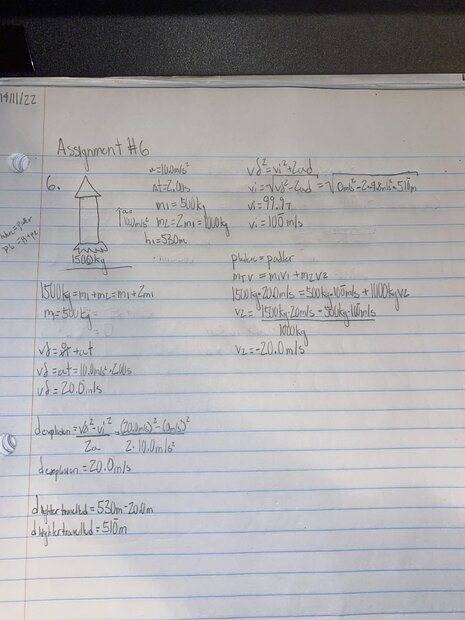 14/11/22
Assignment #6
6.
1500kg
a=10.0m/s²
Δt=2.00s
m1=500kg
m2=2m1=1000kg
h1=530m
10.0m/s²
1500kg=m1+m2=m1+2m1
m1=500kg
vf=vi+at
vf=at=10.0m/s²·2.00s
vf=20.0m/s
d explosion=vf²-vi²/2a=(20.0m/s)²-(0m/s)²/2·10.0m/s²
d explosion=20.0m/s
d lighter travelled=530m-20.0m
d lighter travelled=510m
vf²=vi²+2ad
vi=√vf²-2ad=√0m/s²-2·-9.8m/s²·510m
vi=99.97
vi=100m/s
pbefore=pafter
mTv=m1v1+m2v2
1500kg·20.0m/s=500kg·100m/s+1000kgv2
v2=1500kg·20m/s-500kg·100m/s/1000kg
v2=-20.0m/s